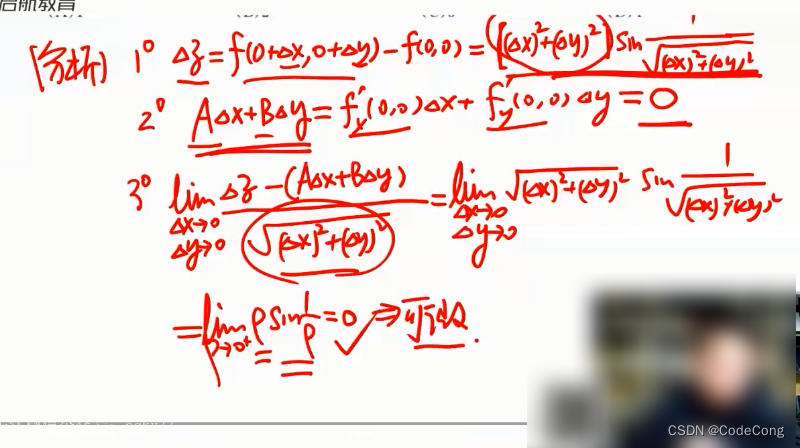 启航教育
[分析] 1° Δz = f(0+Δx, 0+Δy) - f(0,0) = [(Δx)²+(Δy)²] sin 1/√((Δx)²+(Δy)²)
2° AΔx+BΔy = f'x(0,0)Δx + f'y(0,0)Δy = 0
3° lim Δx→0 Δy→0 (Δz-(AΔx+BΔy))/√((Δx)²+(Δy)²) = lim Δx→0 Δy→0 √((Δx)²+(Δy)²) sin 1/√((Δx)²+(Δy)²)
= lim ρ→0⁺ ρ sin 1/ρ = 0 ✓ ⇒ 可微.
CSDN @CodeCong